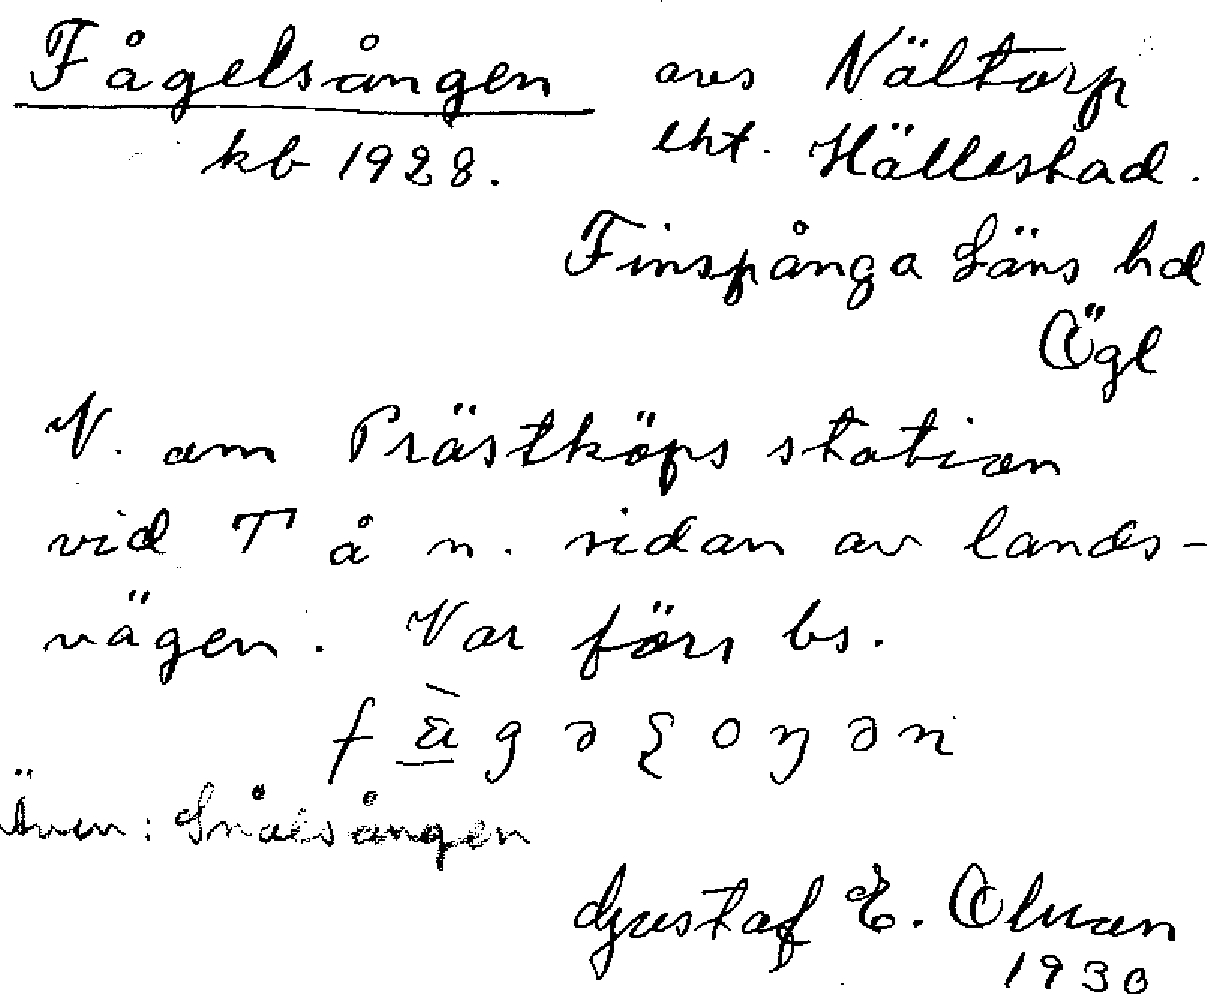 Fågelsången avs Nältorp
kb 1928. lht. Hällestad.
Finspånga läns hd
Ögl
N. om Prästköps station
vid T å n. sidan av lands-
vägen. Var förr bs.
Även: Snålsången
Gustaf E. Olson
1930